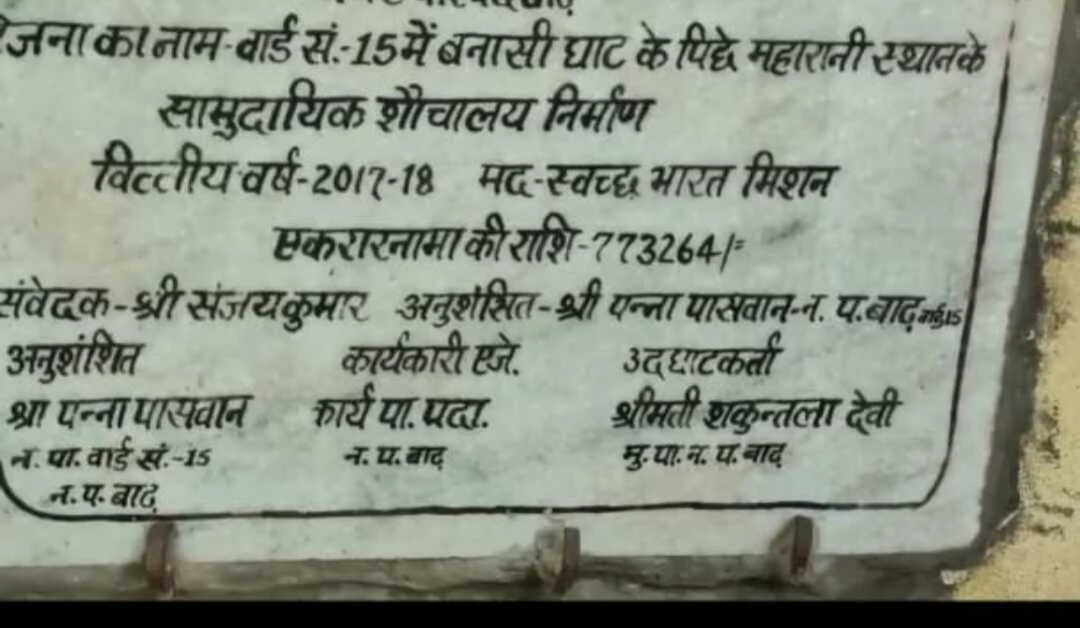 जना का नाम-वार्ड सं.-15 में बनासी घाट के पिछे महारानी स्थान के
सामुदायिक शौचालय निर्माण
वित्तीय वर्ष-2017-18 मद-स्वच्छ भारत मिशन
एकरारनामा की राशि-773264/=
संवेदक-श्री संजय कुमार अनुशंसित-श्री पन्ना पासवान-न. प. बाढ़ वार्ड 15
अनुशंशित कार्यकारी एजे. उद्घाटकर्ता
श्री पन्ना पासवान कार्य पा. पदा. श्रीमती शकुन्तला देवी
न. पा. वार्ड सं.-15 न. प. बाढ़ मु. पा. न. प. बाढ़
न. प. बाढ़